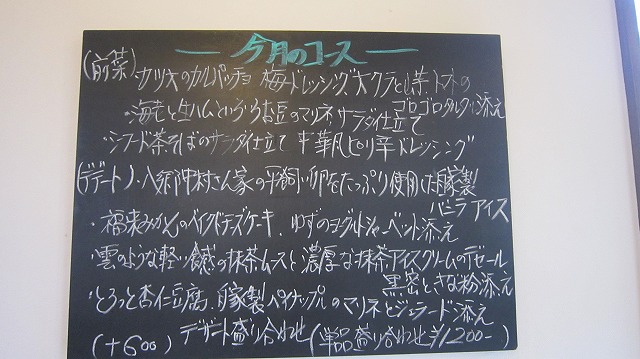 今月のコース
(前菜) カツオのカルパッチョ 梅ドレッシング オクラと山芋トマトの
ゴロゴロタルタル添え
・海老と生ハムといろいろお豆のマリネ サラダ仕立て
・シーフード茶そばのサラダ仕立て 中華風ピリ辛ドレッシング
(デザート)・八郷 中村さん家の平飼い卵をたっぷり使用した自家製
バニラアイス
・福来みかんのベイクドチーズケーキ、ゆずのヨーグルトシャーベット添え
・雲のような軽い食感の抹茶ムースと濃厚な抹茶アイスクリームのデセール
黒蜜ときな粉添え
・とろっと杏仁豆腐、自家製パイナップルのマリネとジェラード添え
(+600) デザート盛り合わせ (単品盛り合わせ ¥1200-)